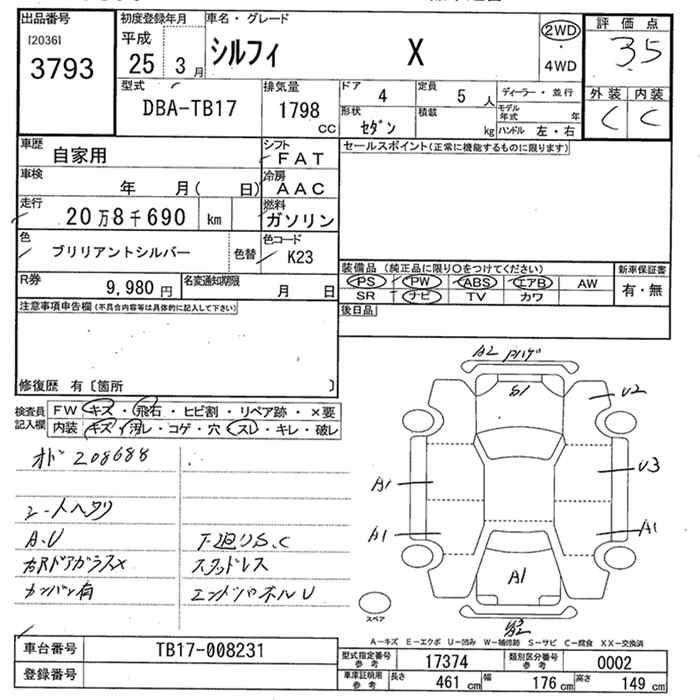 出品番号
[2036]
3793
初度登録年月
平成
25 3月
車名・グレード
シルフィ X
2WD
・
4WD
評価点
3.5
外装 内装
C C
型式
DBA-TB17
排気量
1798 cc
ドア 4
定員 5 人
形状 セダン
積載 kg
ディーラー・並行
モデル年式 年
ハンドル 左・右
車歴
自家用
シフト
FAT
車検
年 月( 日)
冷房
AAC
走行
20万8千690 km
燃料
ガソリン
色
ブリリアントシルバー
色替
色コード
K23
R券
9,980円
名変通知期限
月 日
セールスポイント(正常に機能するものに限ります)
装備品(純正品に限り○をつけてください)
新車保証書
PS PW ABS エアB AW
有・無
SR ナビ TV カワ
後日品
注意事項申告欄(不具合内容等は具体的に記入して下さい)
修復歴 有〔箇所 〕
検査員
記入欄
FW キズ・飛石・ヒビ割・リペア跡・×要
内装 キズ・汚レ・コゲ・穴・スレ・キレ・破レ
オド 208688
シート人ヘタリ
A.U
下廻りS.C
右Rドアガラス×
スタッドレス
カンバン有
エンドパネルU
A2
S1
U2
A1
U3
A1
A1
A1
U2
スペア
A-キズ E-エクボ U-凹み W-補修跡 S-サビ C-腐食 XX-交換済
車台番号
TB17-008231
登録番号
型式指定番号
参考
17374
類別区分番号
参考
0002
車庫証明用
参考
長さ 461 cm
幅 176 cm
高さ 149 cm